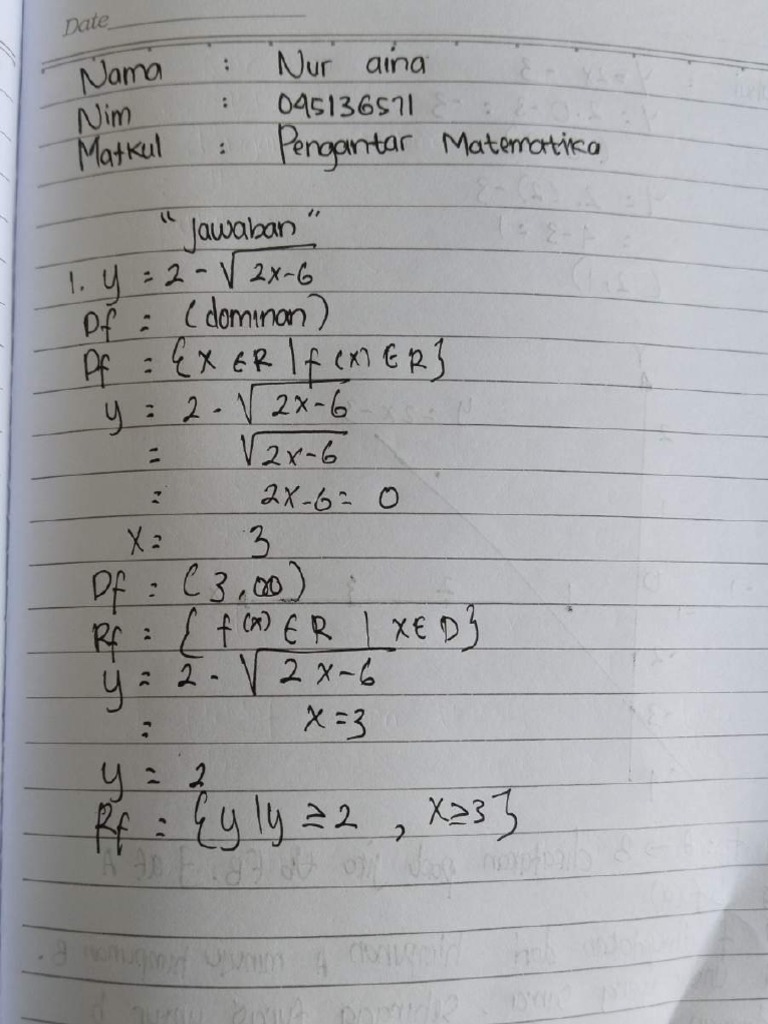 Date
Nama : Nur aina
Nim : 045136571
Matkul : Pengantar Matematika
"Jawaban"
1. y = 2 - √2x-6
Df = (dominan)
Df = {x ∈ R | f(x) ∈ R}
y = 2 - √2x-6
= √2x-6
= 2x-6 = 0
x = 3
Df = (3, ∞)
Rf = { f(x) ∈ R | x ∈ D}
y = 2 - √2x-6
= x = 3
y = 2
Rf = {y | y ≥ 2 , x ≥ 3}